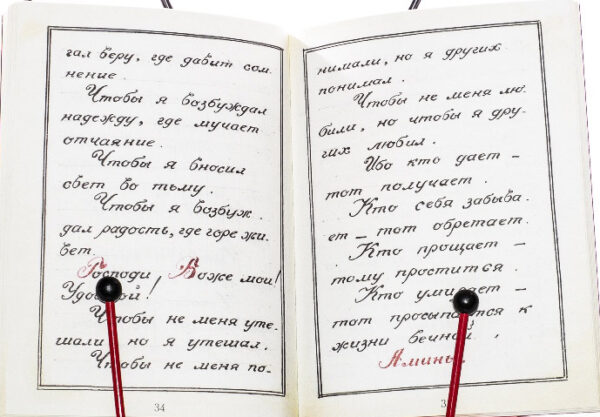 гал веру, где давит сом
нение.
Чтобы я возбуждал
надежду, где мучает
отчаяние.
Чтобы я вносил
свет во тьму.
Чтобы я возбуж.
дал радость, где горе жи.
вет.
Господи, Боже мой!
Удостой!
Чтобы не меня уте-
шали но я утешал.
Чтобы не меня по-
34
нимали, но я других
понимал.
Чтобы не меня лю.
били, но чтобы я дру-
гих любил.
Ибо кто дает –
тот получает.
Кто себя забыва.
ет – тот обретает.
Кто прощает –
тому простится.
Кто умирает –
тот просыпается к
жизни вечной.
Аминь.